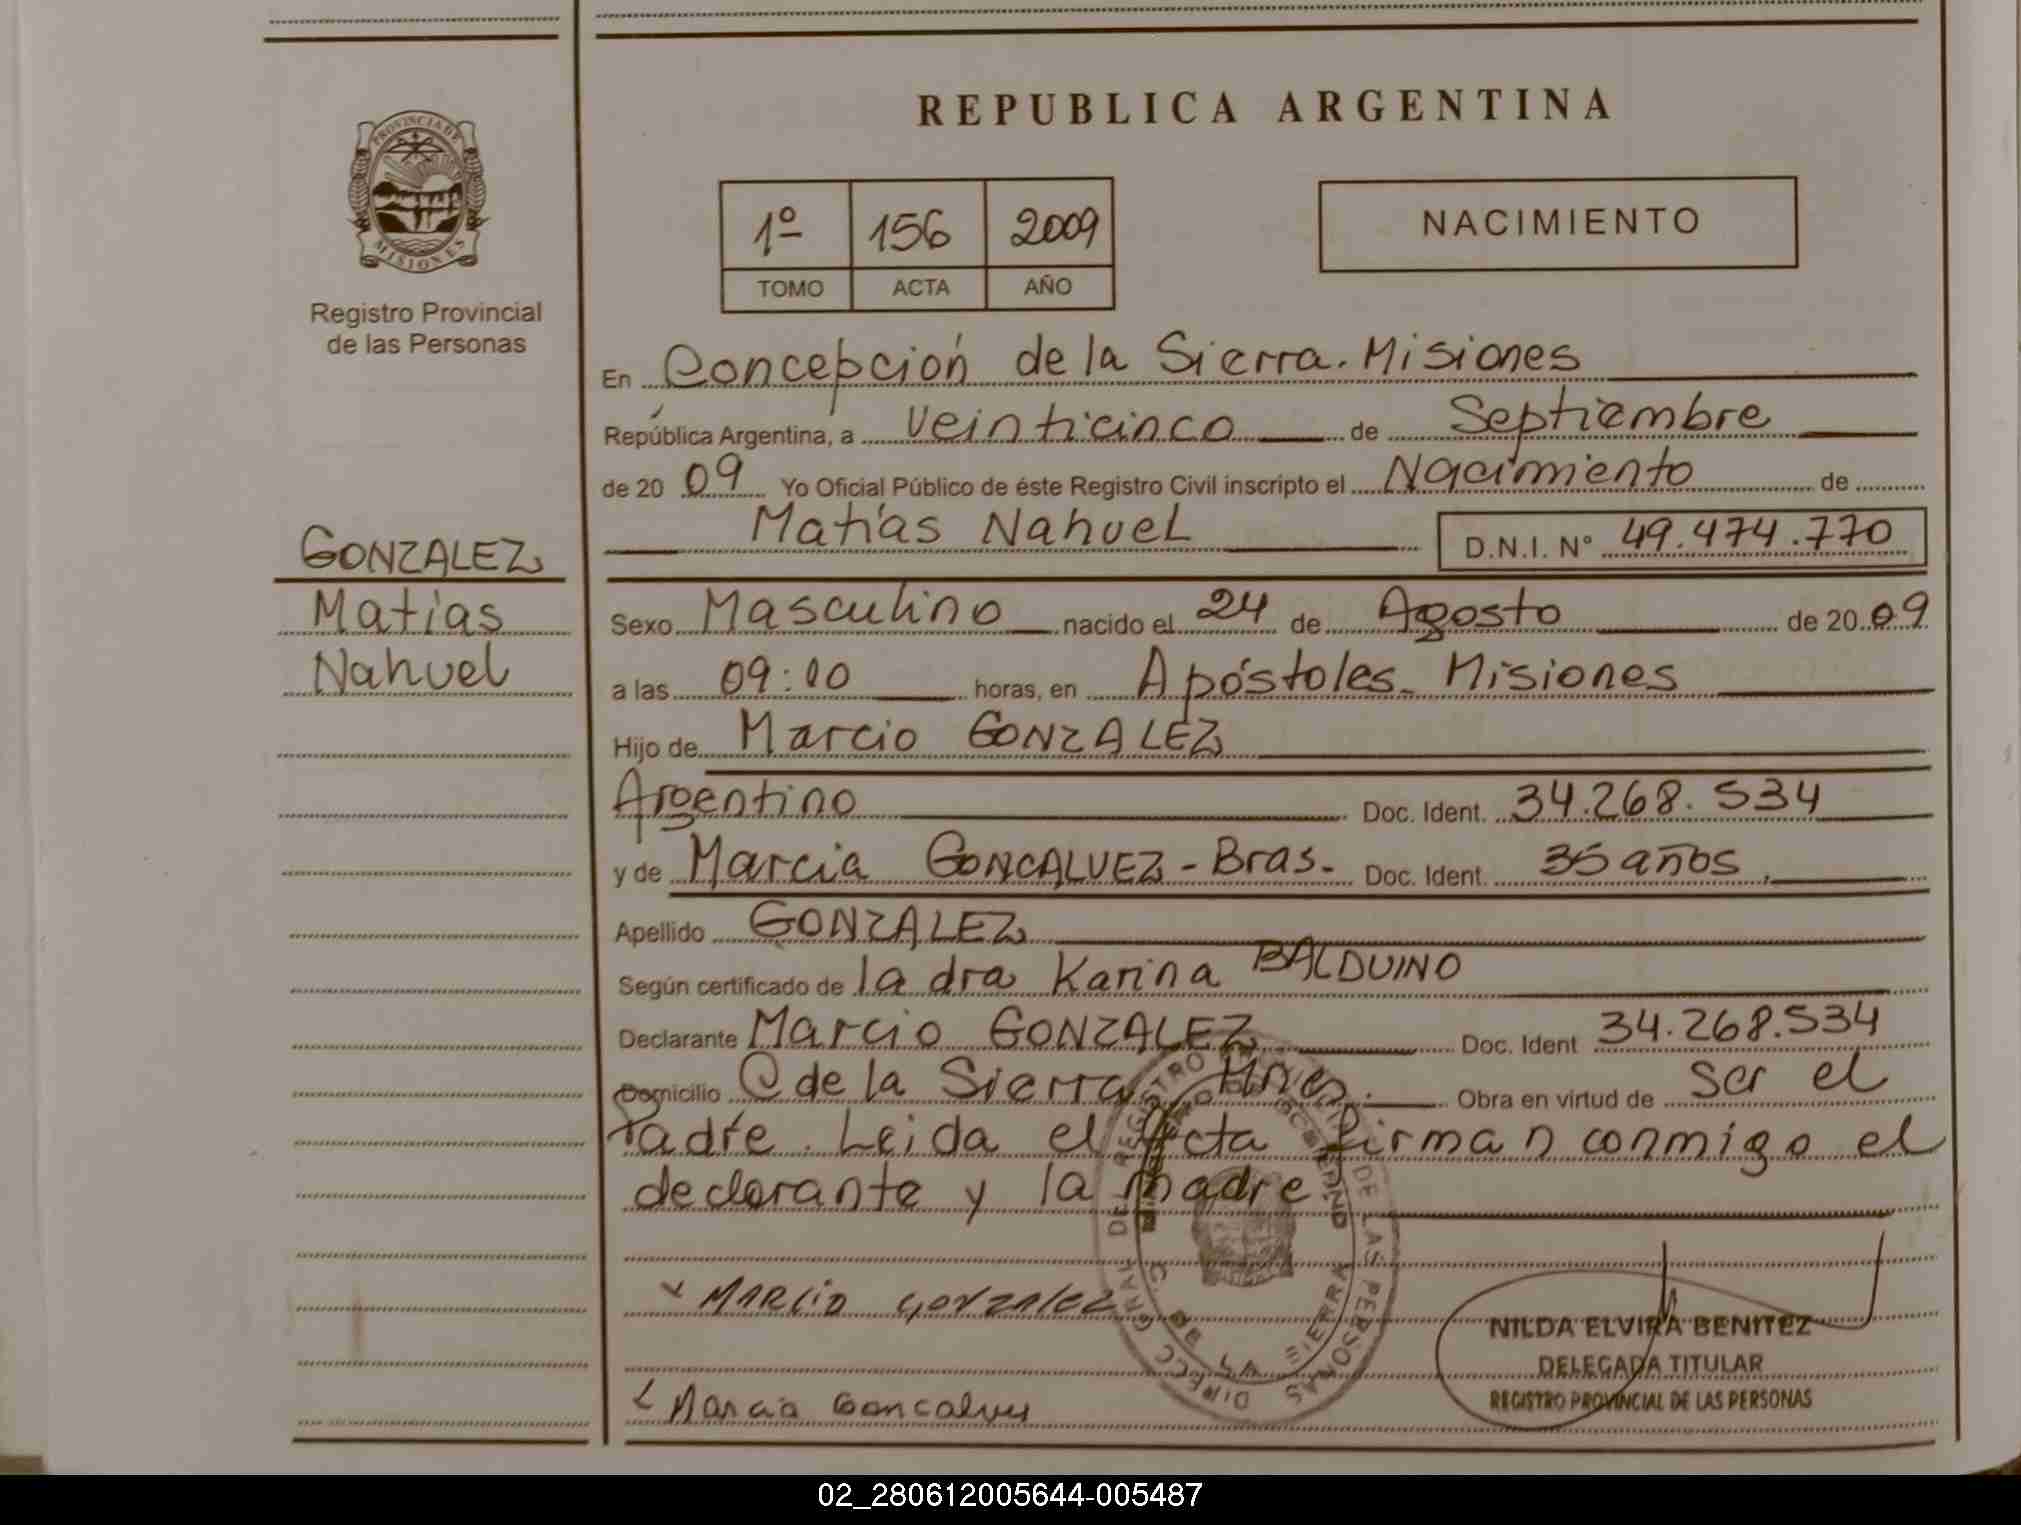 PROVINCIA DE
MISIONES
Registro Provincial
de las Personas
GONZALEZ
Matías
Nahuel
REPUBLICA ARGENTINA
1º 156 2009
TOMO ACTA AÑO
NACIMIENTO
En Concepción de la Sierra. Misiones
República Argentina, a veinticinco de Septiembre
de 20 09 Yo Oficial Público de éste Registro Civil inscripto el Nacimiento de
Matías Nahuel D.N.I. N° 49.474.770
Sexo Masculino nacido el 24 de Agosto de 20 09
a las 09:00 horas, en Apóstoles. Misiones
Hijo de Marcio GONZALEZ
Argentino Doc. Ident. 34.268.534
y de Marcia GONCALVEZ - Bras. Doc. Ident. 35 años,
Apellido GONZALEZ
Según certificado de la dra Karina BALDUINO
Declarante Marcio GONZALEZ Doc. Ident 34.268.534
Domicilio C de la Sierra, Mnes. Obra en virtud de ser el
Padre. Leida el Acta firman conmigo el
declarante y la madre
DIRECC GRAL DE REGISTRO DE LAS PERSONAS
C. DE LA SIERRA
MARCIO gonzalez
Marcia Goncalves
NILDA ELVIRA BENITEZ
DELEGADA TITULAR
REGISTRO PROVINCIAL DE LAS PERSONAS
02_280612005644-005487